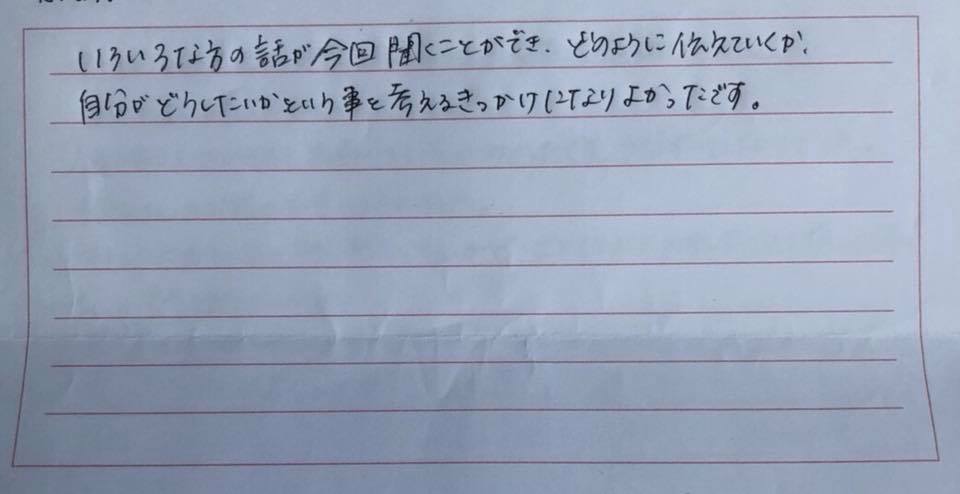 いろいろな方の話が今回聞くことができ、どのように伝えていくか、
自分がどうしたいかという事を考えるきっかけになりよかったです。